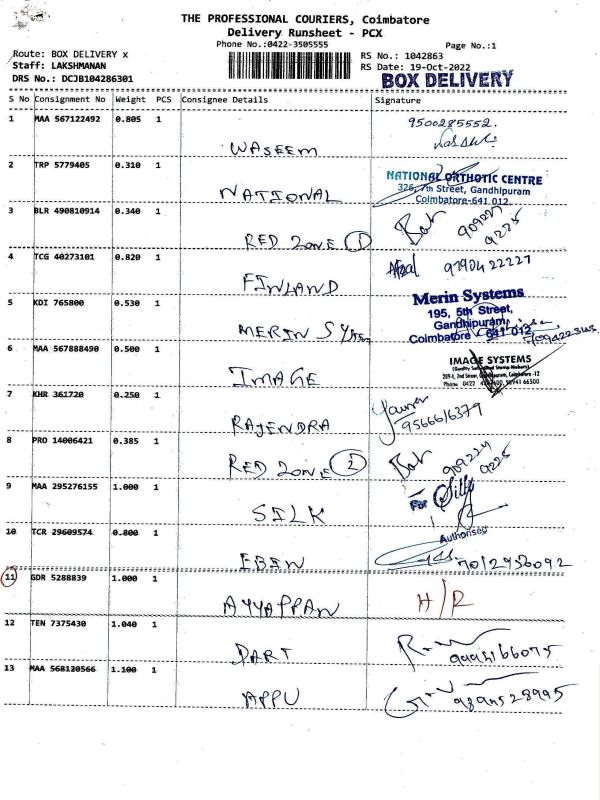 THE PROFESSIONAL COURIERS, Coimbatore
Delivery Runsheet - PCX
Phone No.:0422-3505555
Page No.:1
Route: BOX DELIVERY x
Staff: LAKSHMANAN
DRS No.: DCJB104286301
RS No.: 1042863
RS Date: 19-Oct-2022
BOX DELIVERY
S No Consignment No Weight PCS Consignee Details Signature
1 MAA 567122492 0.805 1
WASEEM
9500285552.
2 TRP 5779405 0.310 1
NATIONAL
NATIONAL ORTHOTIC CENTRE
326, 7th Street, Gandhipuram
Coimbatore-641 012
3 BLR 490810914 0.340 1
RED ZONE 1
9225
4 TCG 40273101 0.820 1
FINLAND
Afzal 9790422227
5 KDI 765800 0.530 1
MERIN
Merin Systems
195, 5th Street,
Gandhipuram,
Coimbatore - 641 012
6 MAA 567888490 0.500 1
IMAGE
IMAGE SYSTEMS
7 KHR 361720 0.250 1
RAJENDRA
9566616379
8 PRO 14006421 0.385 1
RED ZONE 2
9225
9 MAA 295276155 1.000 1
SILK
For Silk
Authorised
10 TCR 29609574 0.800 1
EBIN
7012956092
11 GDR 5288839 1.000 1
AYYAPPAN
H/R
12 TEN 7375430 1.040 1
DART
13 MAA 568120566 1.100 1
APPU